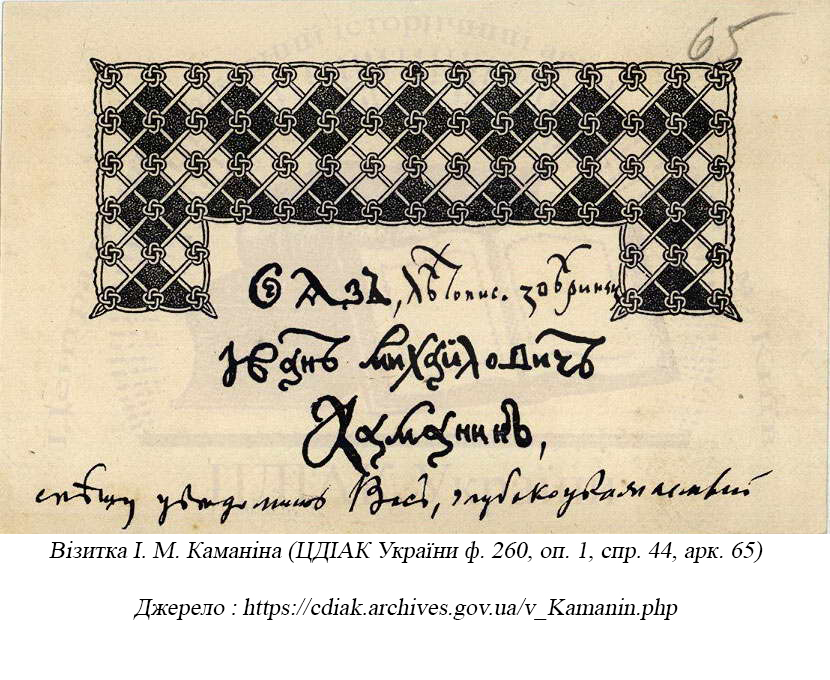 65
Се Азъ,
Іванъ Михайловичъ
Каманинъ,
спѣшу увѣдомить Васъ, глубокоуважаемый
Візитка І. М. Каманіна (ЦДІАК України ф. 260, оп. 1, спр. 44, арк. 65)
Джерело : https://cdiak.archives.gov.ua/v_Kamanin.php